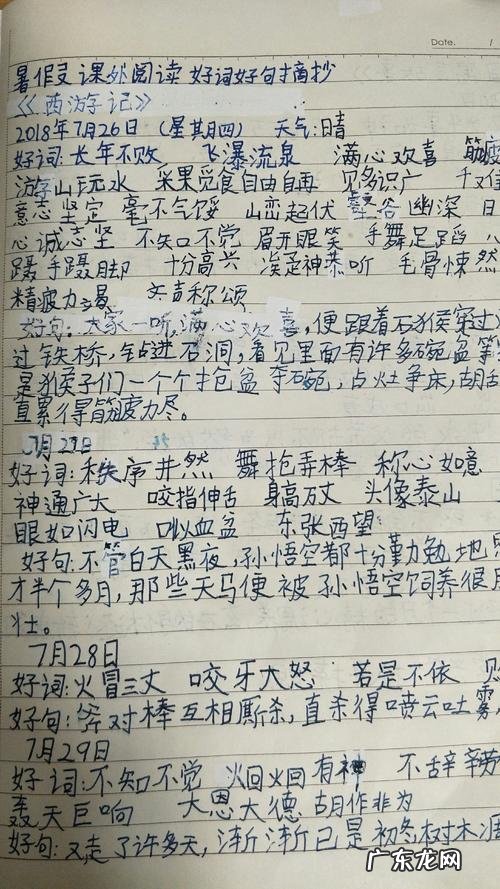 Date.
暑假 课外阅读 好词好句摘抄
《西游记》
2018年7月26日 (星期四) 天气:晴
好词:长年不败 飞瀑流泉 满心欢喜 筋疲
游山玩水 采果觅食 自由自再 见多识广
意志坚定 毫不气馁 山峦起伏 谷幽深 日
心诚志坚 不知不觉 眉开眼笑 手舞足蹈 小
蹑手蹑脚 十分高兴 神恭听 毛骨悚然
精疲力 齐声称颂
好句:大家一听,满心欢喜,便跟着石猴穿过
过铁桥,钻进石洞,看见里面有许多碗盆等
是猴子们一个个抢盆夺碗,占灶争床,胡
直累得筋疲力尽。
7月27日
好词:秩序井然 舞抢弄棒 称心如意
神通广大 咬指伸舌 身高万丈 头像泰山
眼如闪电 口似血盆 东张西望
好句:不管白天黑夜,孙悟空都十分勤勉地
才半个多月,那些天马便被孙悟空饲养很
壮。
7月28日
好词:火冒三丈 咬牙大怒 若是不依
好句:斧对棒互相厮杀,直杀得喷云吐雾,
7月29日
好词:不知不觉 炯炯有神 不辞辛劳
轰天巨响 大恩大德 胡作非为
好句:又走了许多天,渐渐已是初冬树木
广东龙网